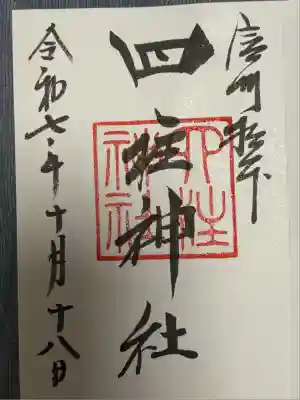 信州松本
四柱神社
四柱
神社
令和七年十月十八日